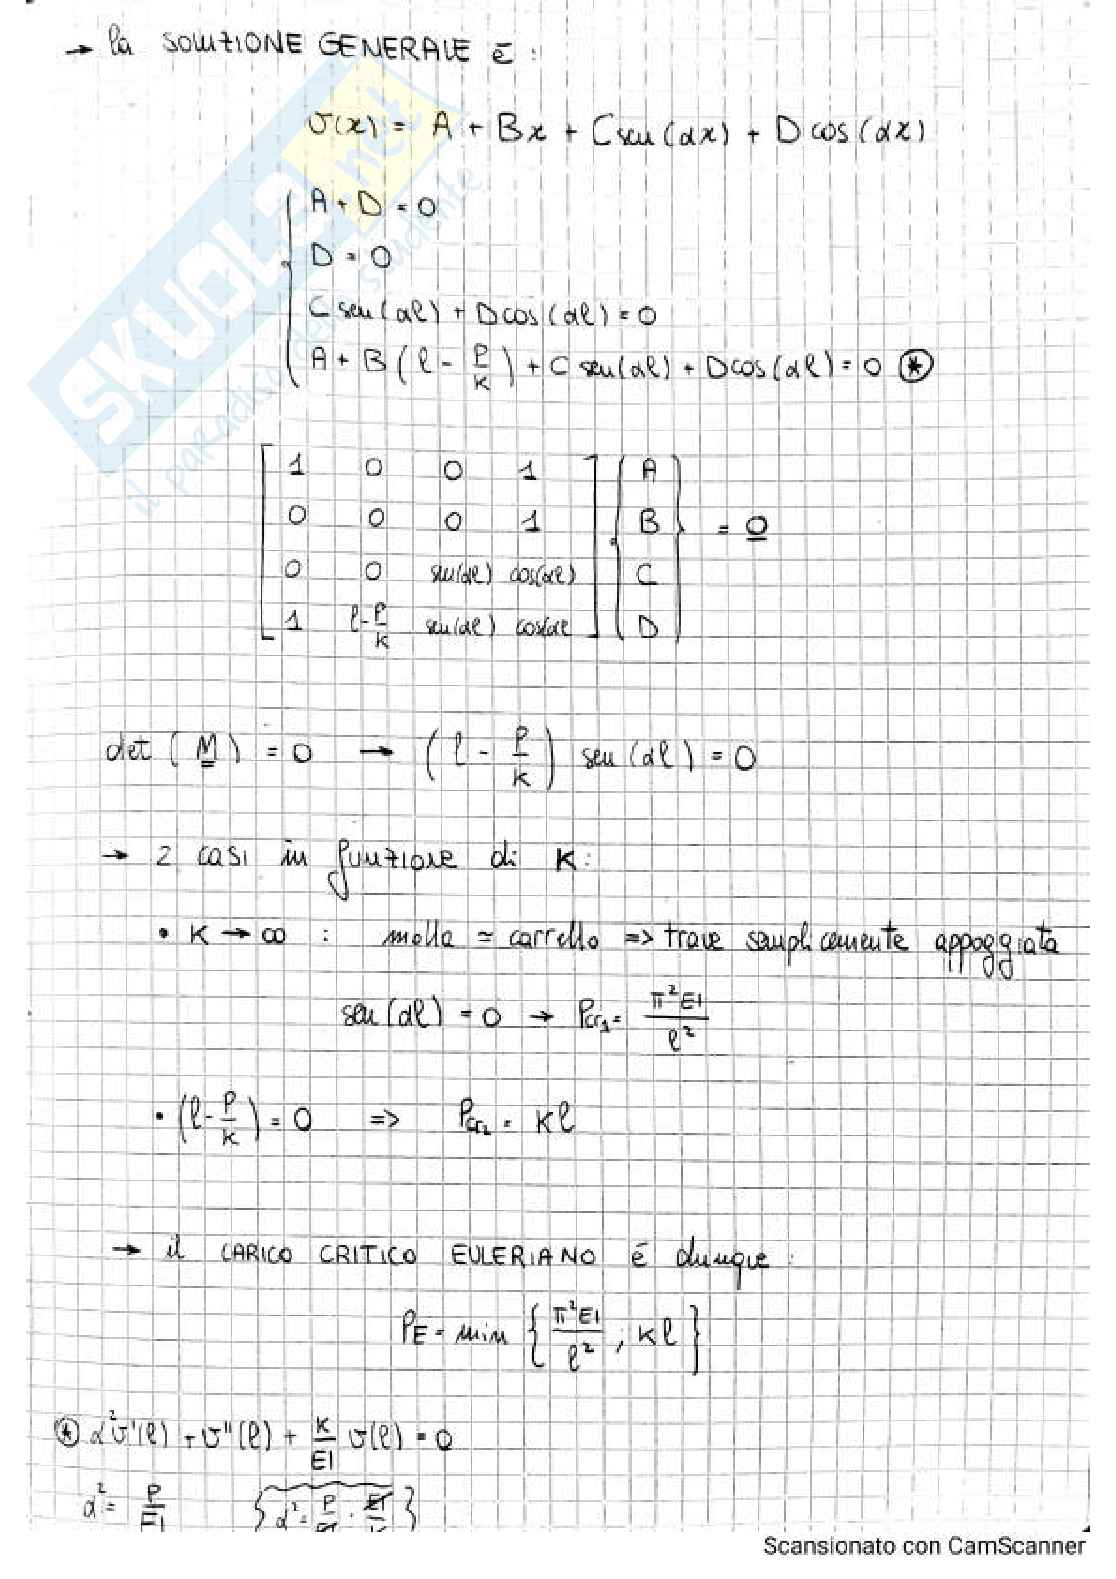 → la SOLUZIONE GENERALE è :
v(x) = A + Bx + C sen(αx) + D cos(αx)
A + D = 0
D = 0
C sen(αl) + D cos(αl) = 0
A + B(l - P/K) + C sen(αl) + D cos(αl) = 0 (*)
[1 0 0 1] {A}
[0 0 0 1] {B} = 0
[0 0 sen(αl) cos(αl)] {C}
[1 l-P/K sen(αl) cos(αl] {D}
det (M) = 0 → (l - P/K) sen(αl) = 0
→ 2 casi in funzione di K:
• K → ∞ : molla ≃ carrello => trave semplicemente appoggiata
sen(αl) = 0 → Pcr1 = π²EI/l²
• (l - P/K) = 0 => Pcr2 = Kl
→ il CARICO CRITICO EULERIANO è dunque:
PE = min { π²EI/l² ; Kl }
(*) α²v'(l) + v''(l) + K/EI v(l) = 0
α² = P/EI { α² = P/EI · EI/K }
SKUOLA.net
il paradiso dello studente
Scansionato con CamScanner